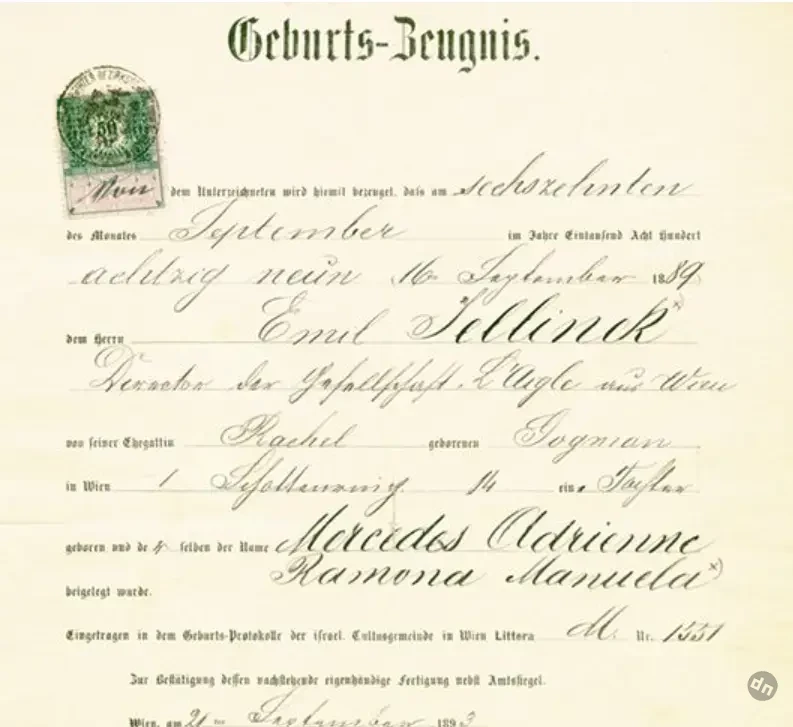 Geburts-Zeugnis.
50
Von dem Unterzeichneten wird hiemit bezeuget, dass am sechszehnten
des Monates September im Jahre Eintausend Acht Hundert
achtzig neun 16 September 1889
dem Herrn Emil Jellinek x)
Director der Gesellschaft L'Aigle aus Wien
von seiner Ehegattin Rachel geborenen Gogman
in Wien 1 Schottenring 14 eine Tochter
geboren und de r selben der Name Mercedes Adrienne
Ramona Manuela x)
beigelegt wurde.
Eingetragen in dem Geburts-Protokolle der israel. Cultusgemeinde in Wien Littera M. Nr. 1551
Zur Bestätigung dessen nachstehende eigenhändige Fertigung nebst Amtssiegel.
Wien, am 21ten September 1893
dn